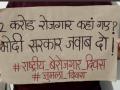 2 करोड़ रोजगार कहां गए?
मोदी सरकार जवाब दो!
#राष्ट्रीय_बेरोजगार_दिवस
#जुमला_दिवस